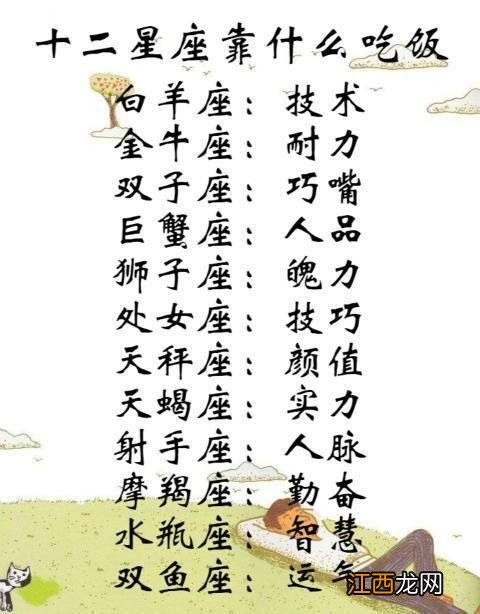 十二星座靠什么吃饭
白羊座：技术
金牛座：耐力
双子座：巧嘴
巨蟹座：人品
狮子座：魄力
处女座：技巧
天秤座：颜值
天蝎座：实力
射手座：人脉
摩羯座：勤奋
水瓶座：智慧
双鱼座：运气
江西龙网